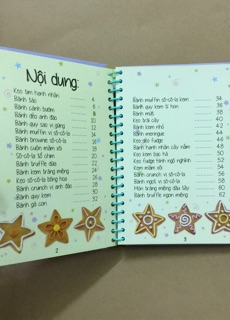 Nội dung:
Kẹo tim hạnh nhân 4
Bánh táo 6
Bánh cánh bướm 8
Bánh dẻo anh đào 10
Bánh quy sao vị gừng 12
Bánh muffin vị sô-cô-la 14
Bánh brownie sô-cô-la 16
Bánh cuộn mâm xôi 18
Sô-cô-la tổ chim 20
Bánh truffle dâu 22
Bánh kem tráng miệng 24
Kẹo sô-cô-la bông hoa 26
Bánh crunch vị anh đào 28
Bánh quy kem 30
Bánh gà con 32
2
Bánh muffin sô-cô-la kem 34
Bánh quy kem tí hon 36
Bánh mứt 38
Kẹo trái cây 40
Bánh kem nhỏ 42
Bánh meringue 44
Kẹo dẻo fudge 46
Bánh hạnh nhân cầy nấm 48
Kẹo kem bạc hà 50
Kẹo fudge hình ngộ nghĩnh 52
Kem mâm xôi 54
Bánh crunch vị sô-cô-la 56
Bánh ngọt vị sô-cô-la 58
Món tráng miệng dâu tây 60
Bánh truffle ngon miệng 62
3